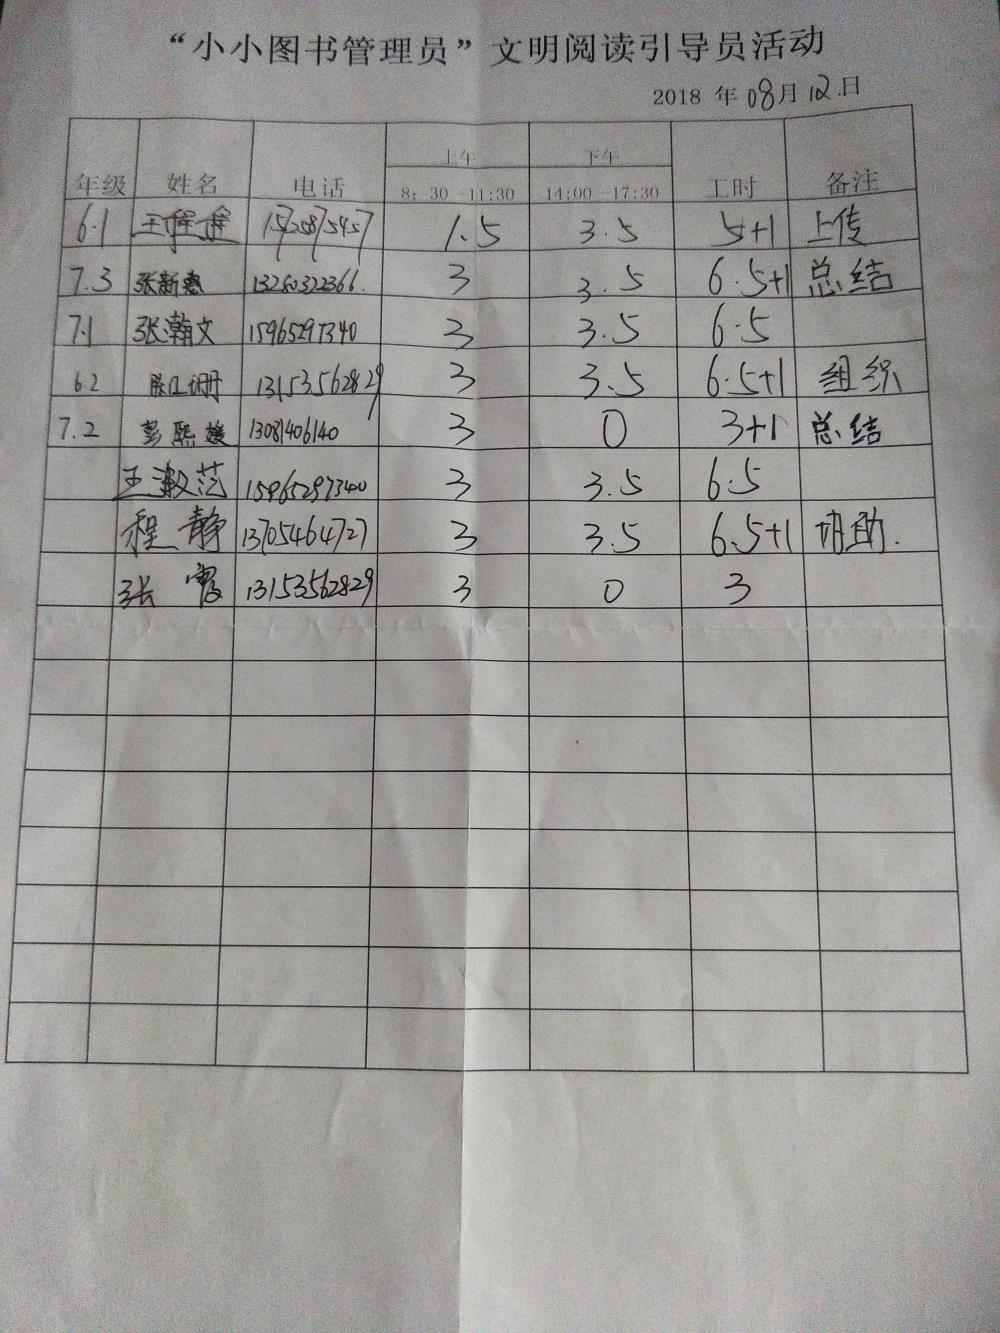 “小小图书管理员”文明阅读引导员活动
2018 年 08月 12日
年级 姓名 电话 上午 8：30 -11:30 下午 14:00 -17:30 工时 备注
6.1 王 15208675457 1.5 3.5 5+1 上传
7.3 张新惠 13280322366. 3 3.5 6.5+1 总结
7.1 张瀚文 15965297340 3 3.5 6.5
6.2 13153562829 3 3.5 6.5+1 组织
7.2 彭熙媛 13081406140 3 0 3+1 总结
王淑范 15965297340 3 3.5 6.5
程静 13705464727 3 3.5 6.5+1 协助.
张霞 13153562829 3 0 3